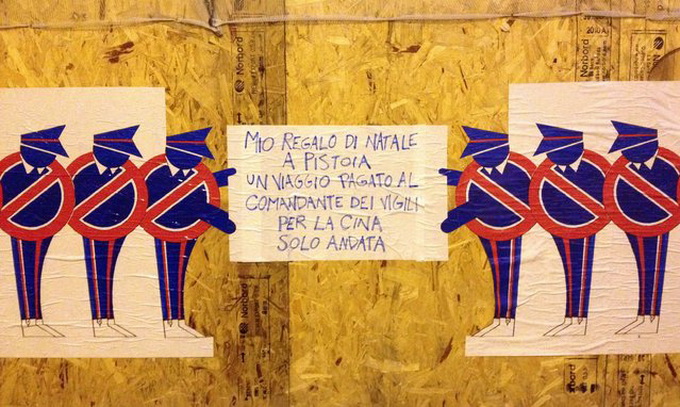 MIO REGALO DI NATALE
A PISTOIA
UN VIAGGIO PAGATO AL
COMANDANTE DEI VIGILI
PER LA CINA
SOLO ANDATA
Norbord
Norbord
Norbord
2010 A
Norbord
Norbord